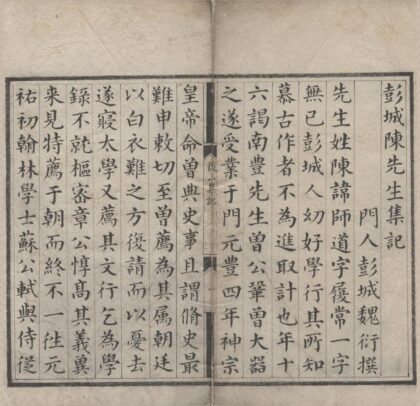 彭城陳先生集記
門人彭城魏衍撰
先生姓陳諱師道字履常一字
無已彭城人幼好學行其所知
慕古作者不為進取計也年十
六謁南豐先生曾公鞏曾大器
之遂受業于門元豐四年神宗
皇帝命曾典史事且謂脩史最
難申敕切至曾薦為其属朝廷
以白衣難之方復請而以憂去
遂寢太學又薦其文行乞為學
錄不就樞審章公惇高其義冀
來見特薦于朝而終不一徃元
祐初翰林學士蘇公軾與侍從